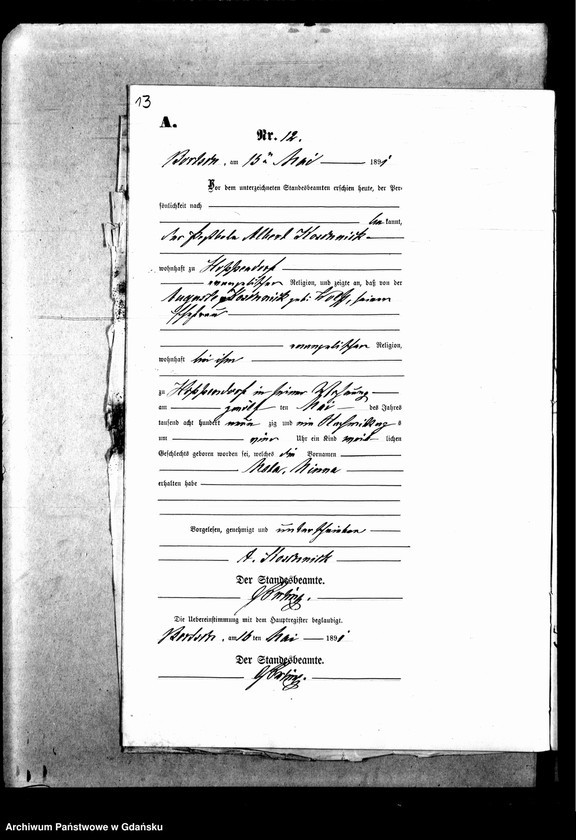 13
A.
Nr. 12.
am 15ten Mai 1891
Vor dem unterzeichneten Standesbeamten erschien heute, der Per-
sönlichkeit nach
bekannt,
der Albert
wohnhaft zu Hoppendorf
evangelischer Religion, und zeigte an, daß von der
Auguste geb. Wolff, seiner
Ehefrau
evangelischer Religion,
wohnhaft bei ihm
zu Hoppendorf in seiner Wohnung
am zwölf ten Mai des Jahres
tausend acht hundert neun zig und ein Nachmittag s
um Uhr ein Kind weib lichen
Geschlechts geboren worden sei, welches die Vornamen
Meta, Minna
erhalten habe
Vorgelesen, genehmigt und unterschrieben
A.
Der Standesbeamte.
Die Uebereinstimmung mit dem Hauptregister beglaubigt.
am 15 ten Mai 1891
Der Standesbeamte.
Archiwum Państwowe w Gdańsku